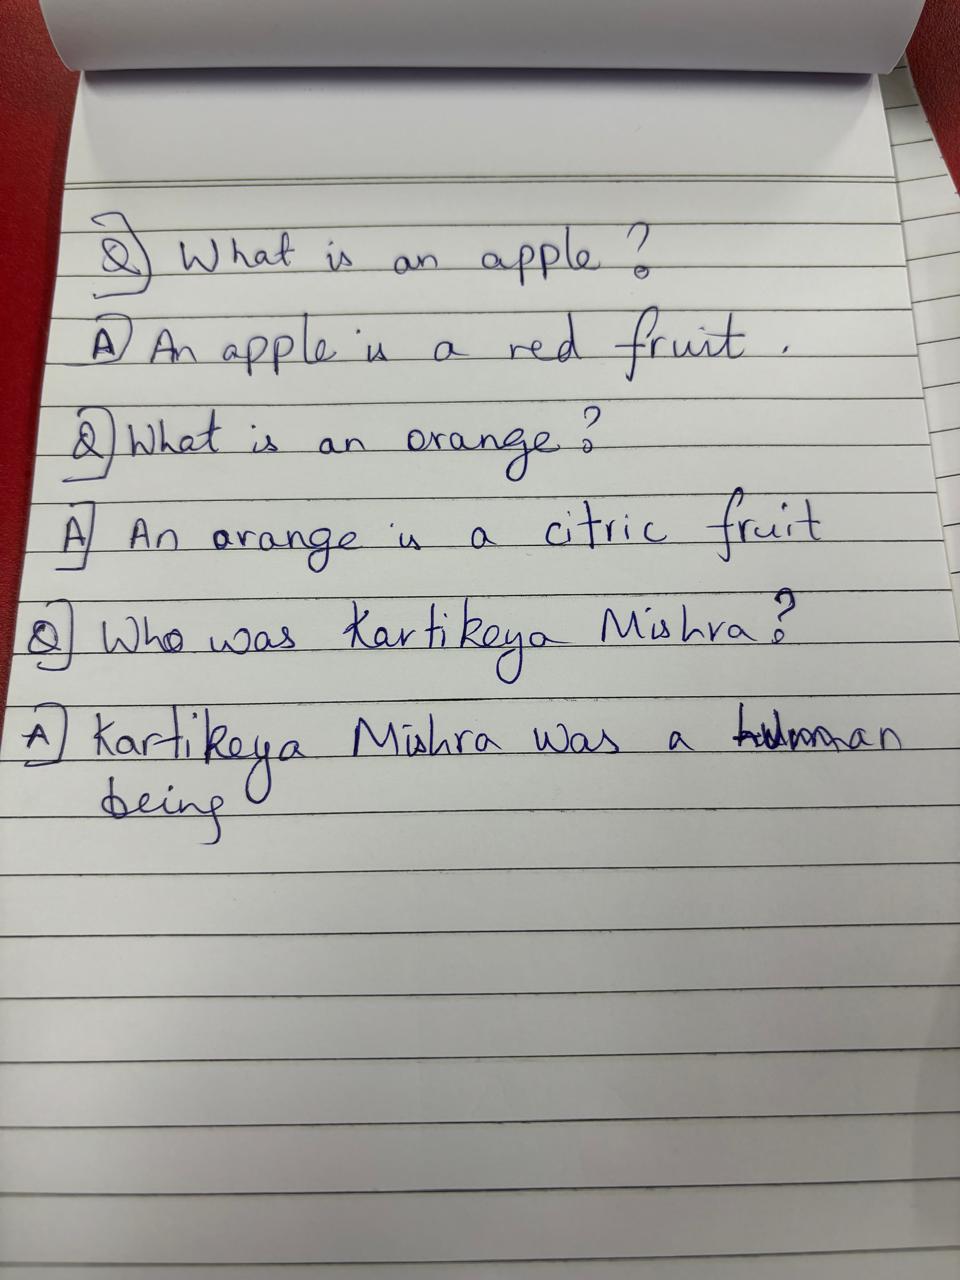 Q] What is an apple?
A] An apple is a red fruit.
Q] What is an orange?
A] An orange is a citric fruit
Q] Who was Kartikeya Mishra?
A] Kartikeya Mishra was a human
being